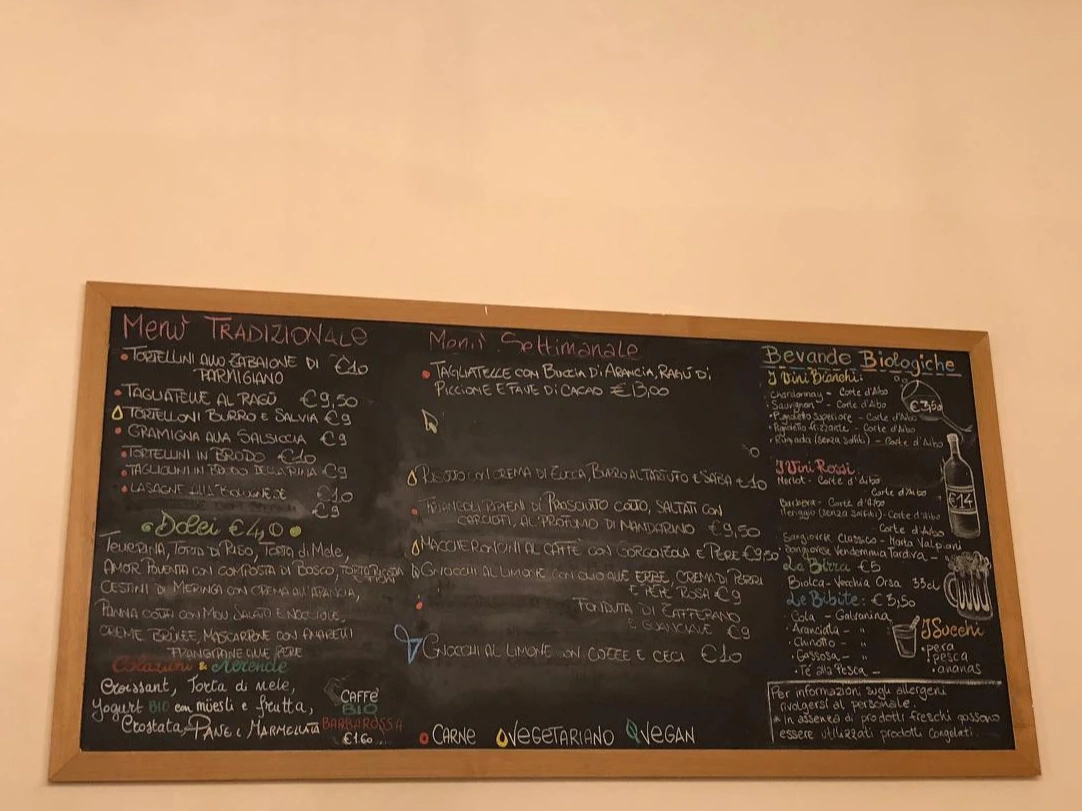 Menù TRADIZIONALE
TORTELLINI ALLO ZABAIONE DI PARMIGIANO €10
TAGLIATELLE AL RAGÙ €9,50
TORTELLONI BURRO E SALVIA €9
GRAMIGNA ALLA SALSICCIA €9
TORTELLINI IN BRODO €10
TAGLIOLINI IN BRODO DELLA €9
LASAGNE ALLA BOLOGNESE €10
€9
Dolci €4,0
TENERINA, TORTA DI RISO, TORTA di Mele,
AMOR POLENTA CON COMPOSTA DI BOSCO,
CESTINI DI MERINGA CON CREMA ALL'ARANCIA,
PANNA COTTA CON MOU SALATO E NOCCIOLE,
CREME BRÛLEE, MASCARPONE CON AMARETTI
FRANGIPANE ALLE PERE
Colazioni & Merende
Croissant, Torta di mele,
Yogurt BIO con müesli e frutta,
Crostata, PANE e MARMELLATA
CAFFÈ
BIO
BARBAROSSA
€1.60
Menù Settimanale
TAGLIATELLE CON BUCCIA DI ARANCIA, RAGÙ DI
PICCIONE E FAVE DI CACAO €13,00
RISOTTO CON CREMA DI ZUCCA, BURRO AL TARTUFO E SABA €10
TRIANGOLI RIPIENI DI PROSCIUTTO COTTO, SALTATI CON
CARCIOFI, AL PROFUMO DI MANDARINO €9,50
MACCHERONCINI AL CAFFÈ CON GORGONZOLA E PERE €9,50
GNOCCHI AL LIMONE CON OLIO ALLE ERBE, CREMA DI PORRI
E PEPE ROSA €9
FONDUTA DI ZAFFERANO
E GUANCIALE €9
GNOCCHI AL LIMONE CON COZZE E CECI €10
CARNE VEGETARIANO VEGAN
Bevande Biologiche
I Vini Bianchi:
Chardonnay - Corte d'Aibo
Sauvignon - Corte d'Aibo
Pignoletto Superiore - Corte d'Aibo
Pignoletto frizzante - Corte d'Aibo
(Senza Solfiti) - Corte d'Aibo
€3,50
I Vini Rossi
Merlot - Corte d'Aibo
Corte d'Aibo
Barbera - Corte d'Aibo
Meriggio (Senza Solfiti) - Corte d'Aibo
Corte d'Aibo
Sangiovese Classico - Maria Valpiani
Sangiovese Vendemmia Tardiva - "
€14
La Birra €5
Biolca - Vecchia Orsa 33cl
Le Bibite: €3,50
Cola - Galvanina
Aranciata - "
Chinotto - "
Gassosa - "
Tè alla Pesca -
I Succhi
pera
pesca
ananas
Per informazioni sugli allergeni
rivolgersi al personale.
* in assenza di prodotti freschi possono
essere utilizzati prodotti congelati.